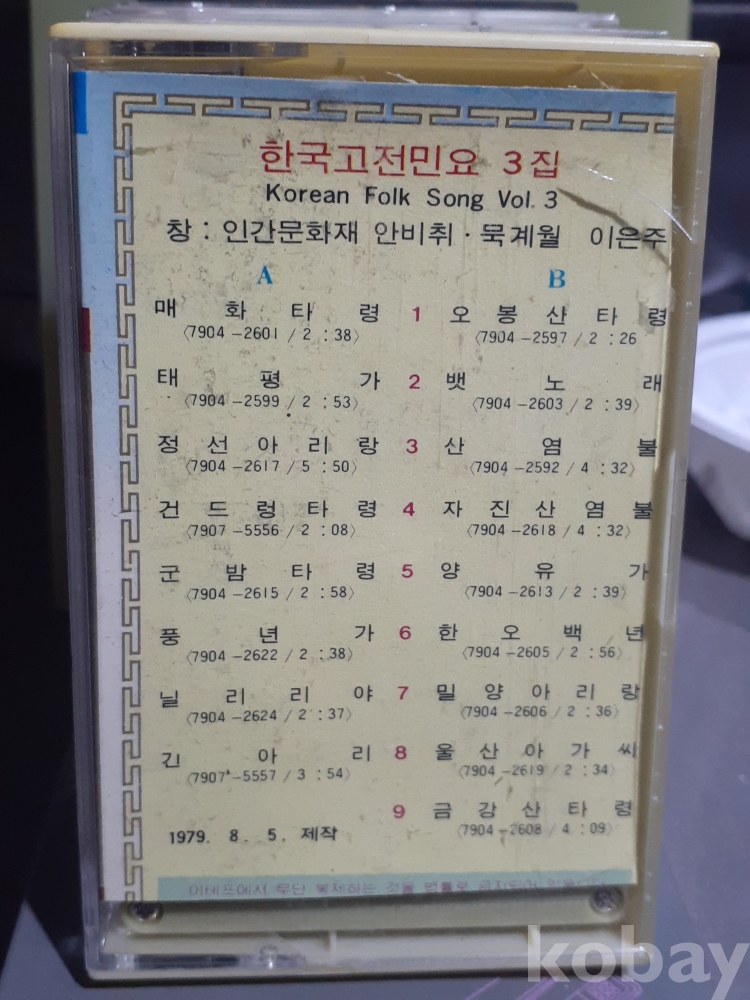 한국고전민요 3집
Korean Folk Song Vol. 3
창 : 인간문화재 안비취 · 묵계월 이은주
A B
매화타령 1 오봉산타령
〈7904-2601 / 2 : 38〉 〈7904-2597 / 2 : 26
태평가 2 뱃노래
〈7904-2599 / 2 : 53〉 〈7904-2603 / 2 : 39〉
정선아리랑 3 산염불
〈7904-2617 / 5 : 50〉 〈7904-2592 / 4 : 32〉
건드렁타령 4 자진산염불
〈7907-5556 / 2 : 08〉 〈7904-2618 / 4 : 32〉
군밤타령 5 양유가
〈7904-2615 / 2 : 58〉 〈7904-2613 / 2 : 39〉
풍년가 6 한오백년
〈7904-2622 / 2 : 38〉 〈7904-2605 / 2 : 56〉
닐리리야 7 밀양아리랑
〈7904-2624 / 2 : 37〉 〈7904-2606 / 2 : 36〉
긴아리 8 울산아가씨
〈7907-5557 / 3 : 54〉 〈7904-2619 / 2 : 34〉
9 금강산타령
1979. 8. 5. 제작 〈7904-2608 / 4 : 09〉
이테프에서 무단 복제하는 것을 법률로 금지되어 있읍니다
kobay